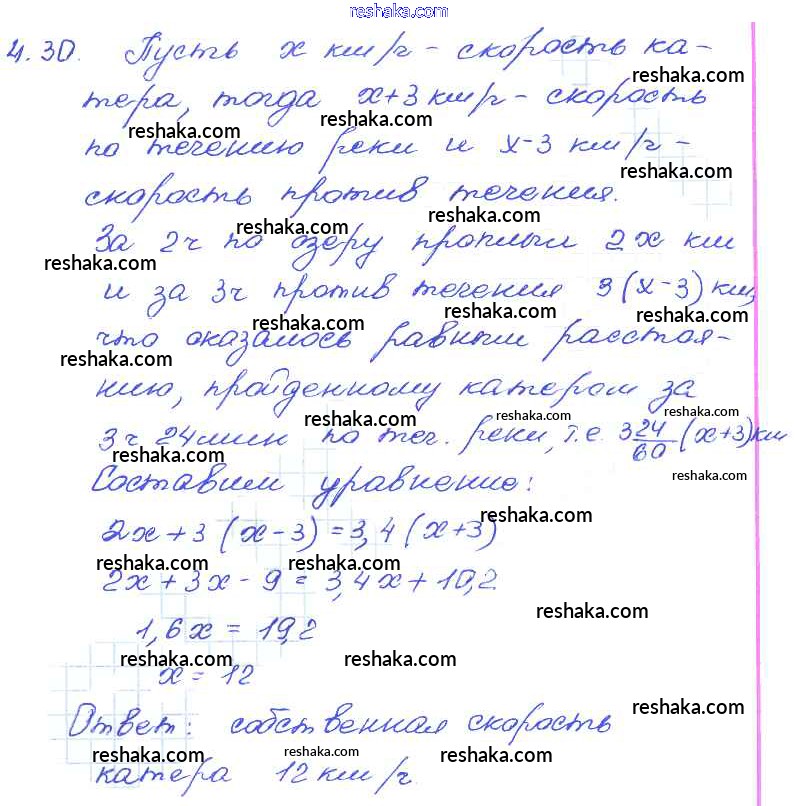 reshaka.com
4.30. Пусть x км/ч - скорость ка-
reshaka.com reshaka.com
тера, тогда x+3 км/ч - скорость
reshaka.com reshaka.com
по течению реки и x-3 км/ч -
reshaka.com reshaka.com
скорость против течения.
За 2ч по озеру проплыл 2x км
reshaka.com reshaka.com reshaka.com
и за 3ч против течения 3(x-3) км,
reshaka.com reshaka.com
что оказалось равным расстоя-
reshaka.com reshaka.com
нию, пройденному катером за
reshaka.com reshaka.com reshaka.com
3ч 24мин по теч. реки, т.е. 3 24/60 (x+3) км
reshaka.com reshaka.com reshaka.com
Составим уравнение:
2x+3(x-3)=3,4(x+3)
reshaka.com reshaka.com reshaka.com
2x+3x-9=3,4x+10,2
reshaka.com
1,6x=19,2
reshaka.com reshaka.com
x=12
Ответ: собственная скорость
reshaka.com reshaka.com reshaka.com reshaka.com
катера 12 км/ч.